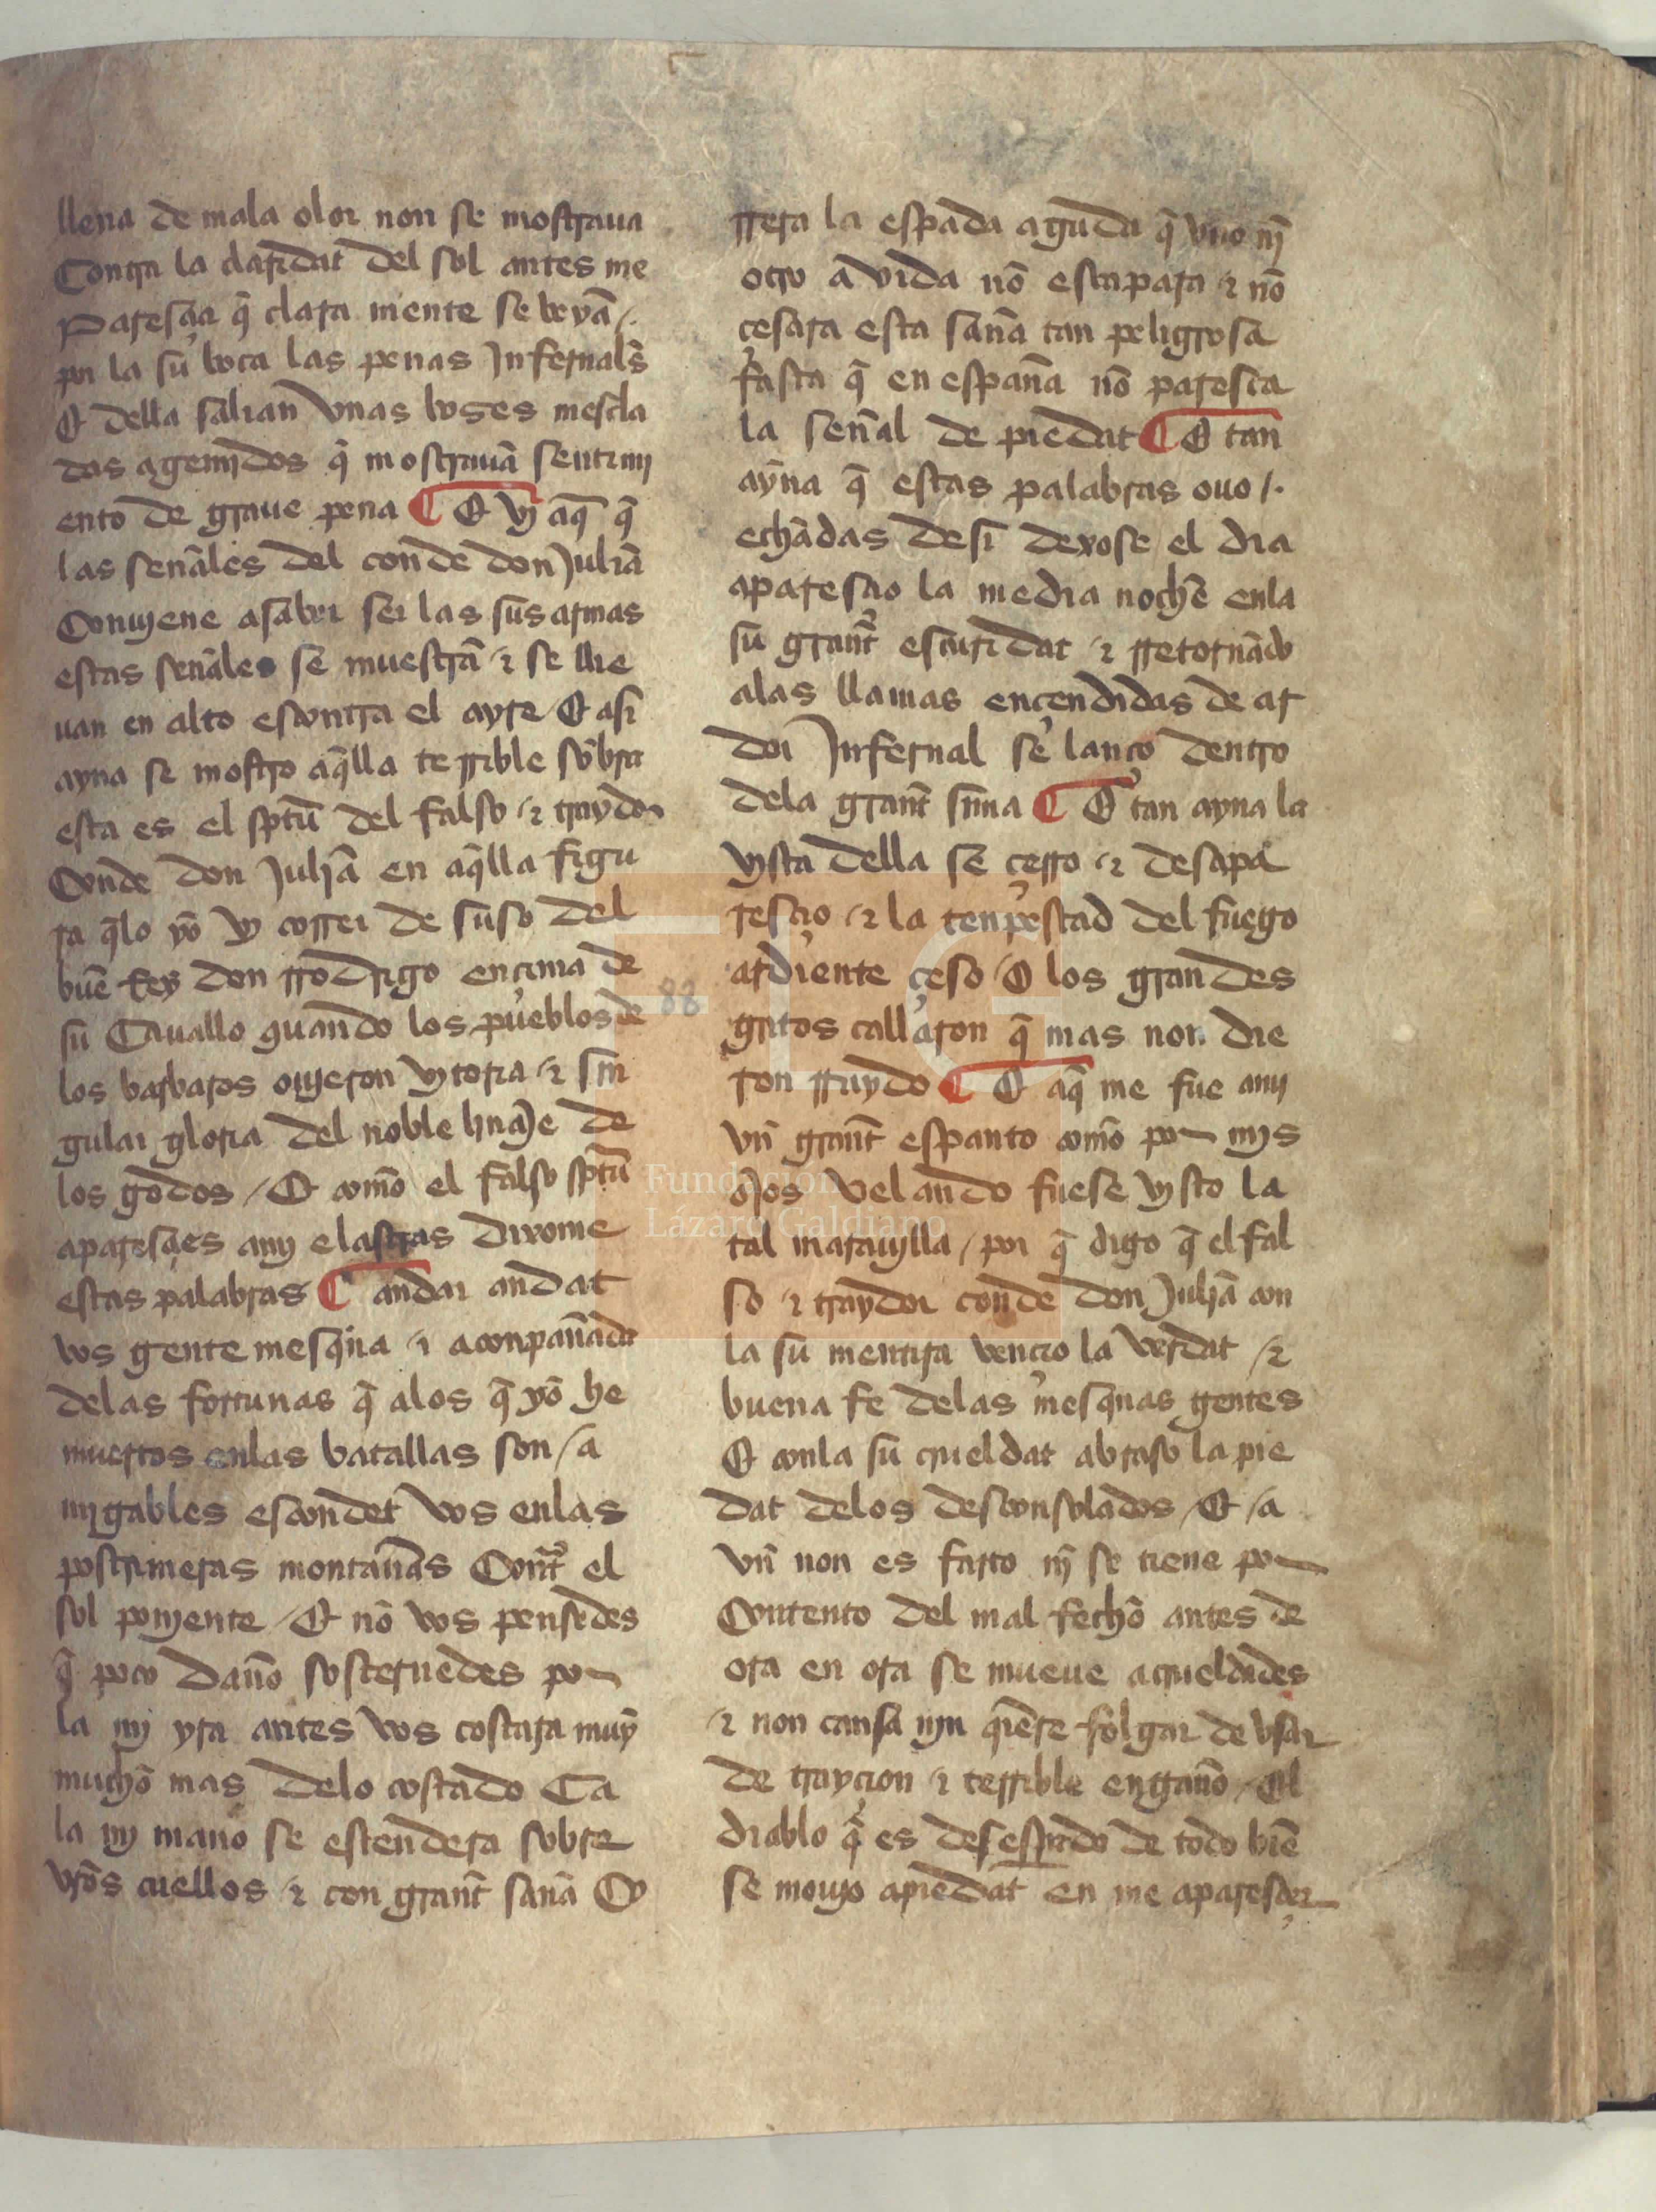 llena de mala olor non se mostraua
Contra la claridat del sol antes me
Paresçia q̃ clara mente se veyã /.
por la su boca las penas Jnfernalẽs
Et della salian vnas boses mescla
das agemidos q̃ mostrauã sentimj
ento de graue pena ¶ Et vj aq̃ q̃
las señales del conde don Juliã
Conujene asaber ser las sus armas
estas señales se muestrã ⁊ se lle
uan en alto escontra el ayre Et asi
ayna se mostro aq̃lla terrible sobra
esta es el sp̃tu del falso ⁊ traydor
Conde don Juliã en aq̃lla figu
ra q̃lo yo vj correr de suso del
buẽ Rey don rrodrigo encima de
su Cauallo quando los pueblos de
los barbaros oujeron vjtoria ⁊ sin
gular gloria del noble linaje de
los godos / Et como el falso sp̃tu
aparesçies amj elastras dixome
estas palabras ¶ andar andat
vos gente mesq̃na ⁊ aconpañada
delas fortunas q̃ alos q̃ yo he
muertos enlas batallas son / a
mjgables escondet vos enlas
postrimeras montañas Cont̃ el
sol ponjente / Et nõ vos pensedes
q̃ poco daño sosternedes por
la mj yra antes vos costara muy
mucho mas delo costado Ca
la mj mano se estendera sobre
vr̃os cuellos ⁊ con grant saña Co
rrera la espada aguda q̃ vno nj̃
otro a vida nõ escapara ⁊ nõ
çesara esta saña tan peligrosa
fasta q̃ en españa nõ paresca
la señal de piedat ¶ Et tan
ayna q̃ estas palabras ouo /.
echadas desi dexose el dia
aparesçio la media noche enla
su grant escuridat ⁊ rretornãdo
alas llamas ençendidas de ar
dor Jnfernal se lanço dentro
dela grant sima ¶ Et tan ayna la
vjsta della se çerro ⁊ desapa
resçio ⁊ la tenpestad del fuego
ardiente çeso / O los grandes
gritos callaron q̃ mas non die
ron rruydo ¶ Et aq̃ me fue amj
vñ grant espanto como por mjs
ojos velando fuese vjsto la
tal marauylla / por q̃ digo q̃ el fal
so ⁊ traydor conde don Juliã con
la su mentira vencio la verdat / ⁊
buena fe delas mesq̃nas gentes
Et conla su crueldat abraso la pie
dat delos desconsolados / Et / a
vñ non es farto nj̃ se tiene por
Contento del mal fecho antes de
ora en ora se mueue a crueldades
⁊ non cansa njn q̃ere folgar de vsar
de traycion ⁊ terrible engaño / El
diablo q̃ es desesp̃ado de todo biẽ
se moujo apiedat en me aparesçer
88
Fundación
Lázaro Galdiano